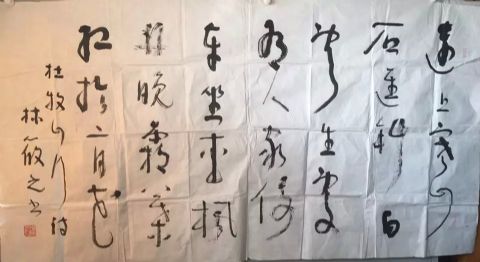 遠上寒山
石逕斜白
雲生處
有人家停
車坐愛楓
林晚霜葉
紅於二月花
杜牧山行詩
林筱之书